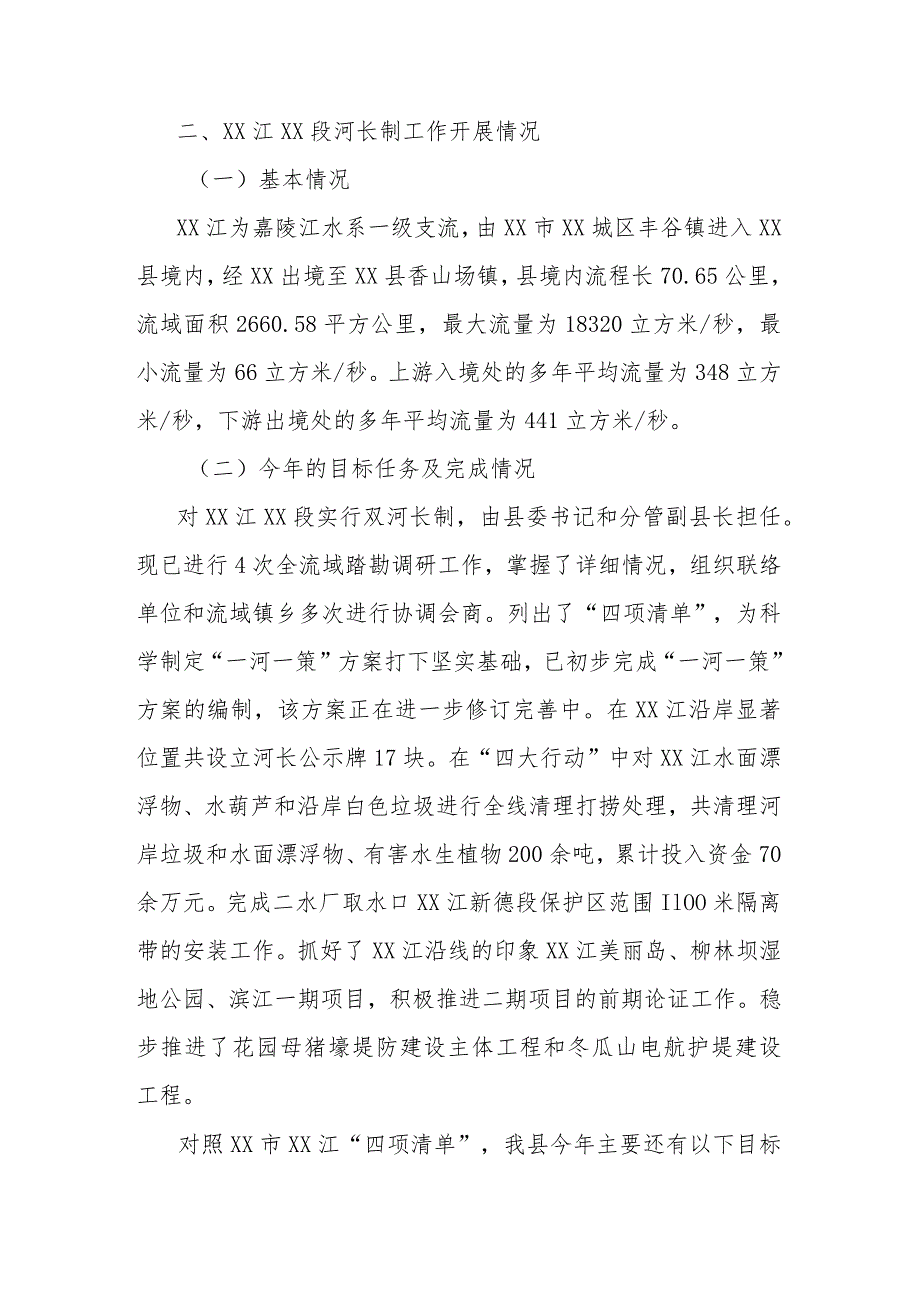 二、XX江XX段河长制工作开展情况
（一）基本情况
XX江为嘉陵江水系一级支流，由XX市XX城区丰谷镇进入XX
县境内，经XX出境至XX县香山场镇，县境内流程长70.65公里，
流域面积2660.58平方公里，最大流量为18320立方米/秒，最
小流量为66立方米/秒。上游入境处的多年平均流量为348立方
米/秒，下游出境处的多年平均流量为441立方米/秒。
（二）今年的目标任务及完成情况
对XX江XX段实行双河长制，由县委书记和分管副县长担任。
现已进行4次全流域踏勘调研工作，掌握了详细情况，组织联络
单位和流域镇乡多次进行协调会商。列出了“四项清单”，为科
学制定“一河一策”方案打下坚实基础，已初步完成“一河一策”
方案的编制，该方案正在进一步修订完善中。在XX江沿岸显著
位置共设立河长公示牌17块。在“四大行动”中对XX江水面漂
浮物、水葫芦和沿岸白色垃圾进行全线清理打捞处理，共清理河
岸垃圾和水面漂浮物、有害水生植物200余吨，累计投入资金70
余万元。完成二水厂取水口XX江新德段保护区范围I100米隔离
带的安装工作。抓好了XX江沿线的印象XX江美丽岛、柳林坝湿
地公园、滨江一期项目，积极推进二期项目的前期论证工作。稳
步推进了花园母猪壕堤防建设主体工程和冬瓜山电航护堤建设
工程。
对照XX市XX江“四项清单”，我县今年主要还有以下目标